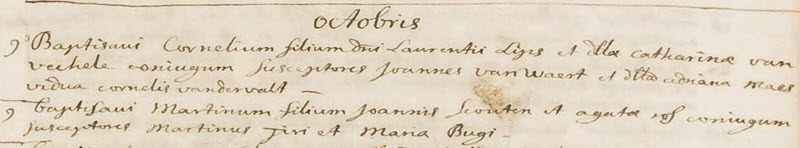 octobris
9 Baptisavi Cornelium filium dni Laurentii Lips et dllæ Catharinæ van
vechele coniugum susceptores Joannes van Waert et dlla adriana Maes
vidua cornelis vandervalt —
9 baptisavi Martinum filium Joannis Scouten et agatæ coniugum
susceptores Martinus et Maria Bugi -